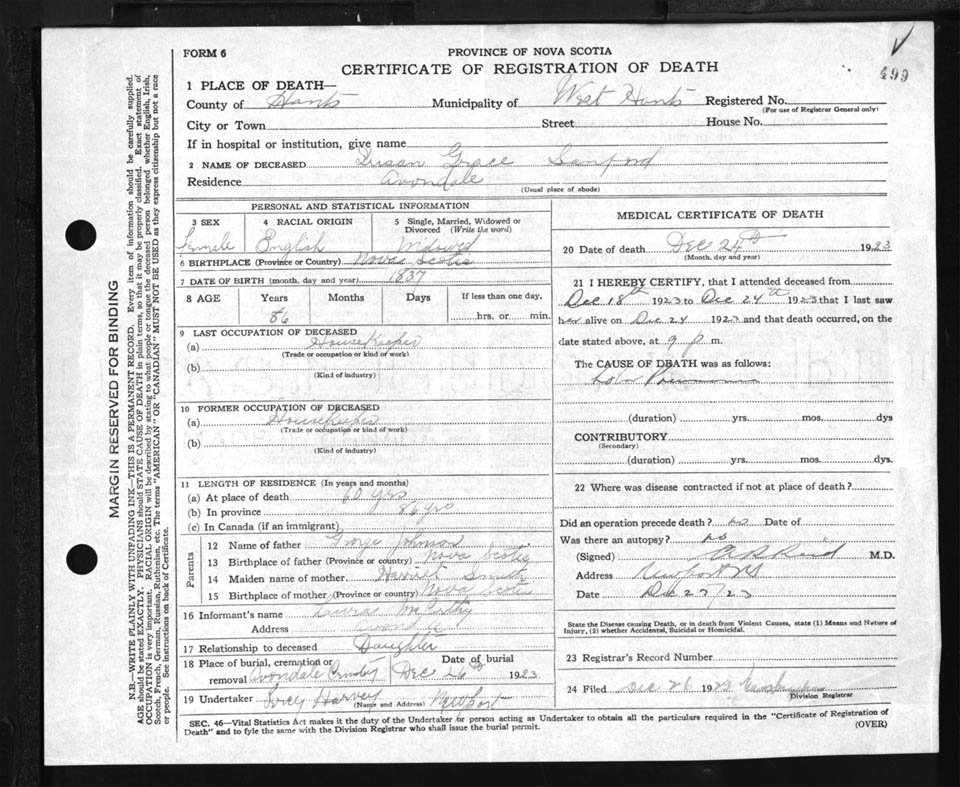 499
FORM 6
PROVINCE OF NOVA SCOTIA
CERTIFICATE OF REGISTRATION OF DEATH
1 PLACE OF DEATH—
County of Hants Municipality of West Hants Registered No.
(For use of Registrar General only)
City or Town Street House No.
If in hospital or institution, give name
2 NAME OF DECEASED Susan Grace Sanford
Residence Avondale
(Usual place of abode)
PERSONAL AND STATISTICAL INFORMATION
3 SEX
Female
4 RACIAL ORIGIN
English
5 Single, Married, Widowed or Divorced (Write the word)
Widowed
6 BIRTHPLACE (Province or Country) Nova Scotia
7 DATE OF BIRTH (month, day and year) 1837
8 AGE Years Months Days If less than one day,
86 hrs. or min.
9 LAST OCCUPATION OF DECEASED
(a) HouseKeeper
(Trade or occupation or kind of work)
(b)
(Kind of industry)
10 FORMER OCCUPATION OF DECEASED
(a) HouseKeeper
(Trade or occupation or kind of work)
(b)
(Kind of industry)
11 LENGTH OF RESIDENCE (In years and months)
(a) At place of death 60 yrs
(b) In province 86 yrs
(c) In Canada (if an immigrant)
Parents
12 Name of father George Johnson
13 Birthplace of father (Province or country) Nova Scotia
14 Maiden name of mother Harriet Smith
15 Birthplace of mother (Province or country) Nova Scotia
16 Informant's name Laura McCarthy
Address Avondale
17 Relationship to deceased Daughter
18 Place of burial, cremation or removal Avondale Date of burial Dec 26th 1923
19 Undertaker Percy Harvey Newport
(Name and Address)
MEDICAL CERTIFICATE OF DEATH
20 Date of death Dec 24th 1923
(Month, day and year)
21 I HEREBY CERTIFY, that I attended deceased from
Dec 18th 1923 to Dec 24th 1923 that I last saw
her alive on Dec 24 1923 and that death occurred, on the
date stated above, at 9 p m.
The CAUSE OF DEATH was as follows:
(duration) yrs. mos. dys
CONTRIBUTORY
(Secondary)
(duration) yrs. mos. dys.
22 Where was disease contracted if not at place of death?
Did an operation precede death? no Date of
Was there an autopsy? no
(Signed) Reid M.D.
Address Newport NS
Date Dec 27/23
State the Disease causing Death, or in death from Violent Causes, state (1) Means and Nature of Injury, (2) whether Accidental, Suicidal or Homicidal.
23 Registrar's Record Number
24 Filed Dec 26 1923
Division Registrar
SEC. 46—Vital Statistics Act makes it the duty of the Undertaker or person acting as Undertaker to obtain all the particulars required in the "Certificate of Registration of
Death" and to fyle the same with the Division Registrar who shall issue the burial permit. (OVER)
MARGIN RESERVED FOR BINDING
N.B.—WRITE PLAINLY WITH UNFADING INK—THIS IS A PERMANENT RECORD. Every item of information should be carefully supplied.
AGE should be stated EXACTLY. PHYSICIANS should STATE CAUSE OF DEATH in plain terms, so that it may be properly classified. Exact statement of
OCCUPATION is very important. RACIAL ORIGIN will be described by stating to what people or tongue the deceased person belonged whether English, Irish,
Scotch, French, German, Russian, Ruthenian, etc. The terms "AMERICAN" OR "CANADIAN" MUST NOT BE USED as they express citizenship but not a race
or people. See instructions on back of Certificate.